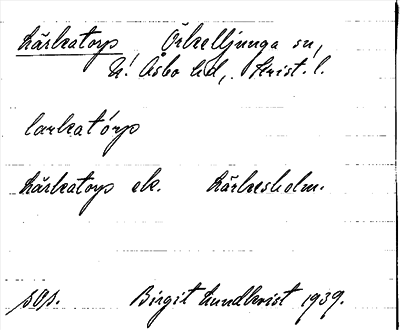 Lärkatorp, Örkelljunga sn,
N. Åsbo hd, Krist. l.
larkatórp
Lärkatorp ek. Lärkesholm.
sgs. Birgit Lundkvist 1939.